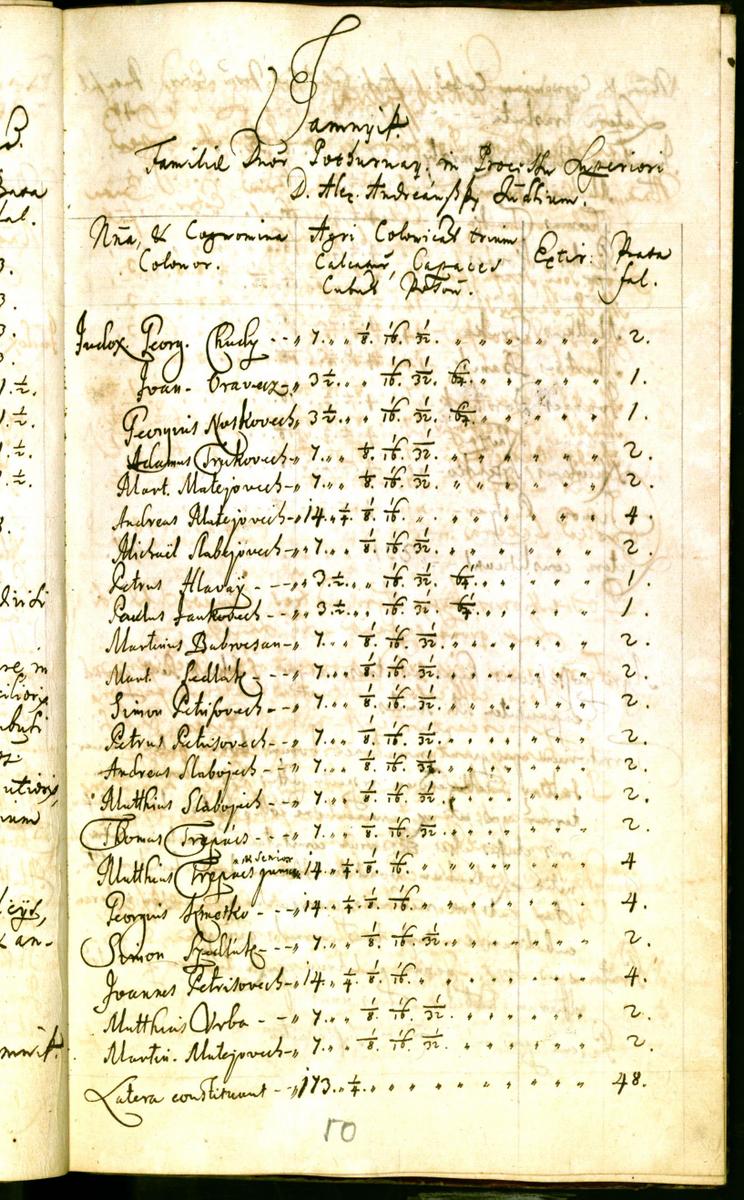 Jamnyik.
Familiæ Dnor. Pothurnay, in Processu Superiori
D. Alex. Andreánszky Judlium.
Nna, & Cognomina Colonor.
Agri Colonicales trium Calcatur, Capaces Cubul.
Extir.
Prata fal.
Judex. Georg. Chudy - - „ 7. „ „ 1/8. 1/16. 1/32. „ „ „ „ „ „ 2.
Joan. Oravecz „ 3 1/2. „ „ 1/16. 1/32. 1/64. „ „ „ „ „ 1.
Georgius Noskovech „ 3 1/2. „ „ 1/16. 1/32. 1/64. „ „ „ „ „ 1.
Adamus Trnkovech - „ 7. „ „ 1/8. 1/16. 1/32. „ „ „ „ „ „ 2.
Mart. Matejovech - „ 7. „ „ 1/8. 1/16. 1/32. „ „ „ „ „ „ 2.
Andreas Matejovech - „ 14. „ 1/4. 1/8. 1/16. „ „ „ „ „ „ 4.
Michaël Slabejovech - „ 7. „ „ 1/8. 1/16. 1/32. „ „ „ „ „ „ 2.
Petrus Hlavay - - - „ 3. 1/2. „ „ 1/16. 1/32. 1/64. „ „ „ „ „ 1.
Paulus Jankovech - - „ 3. 1/2. „ „ 1/16. 1/32. 1/64. „ „ „ „ „ 1.
Martinus Bobrovsan - „ 7. „ „ 1/8. 1/16. 1/32. „ „ „ „ „ „ 2.
Mart. Sedlák - - - „ 7. „ „ 1/8. 1/16. 1/32. „ „ „ „ „ „ 2.
Simon Petrisovech - - „ 7. „ „ 1/8. 1/16. 1/32. „ „ „ „ „ „ 2.
Petrus Petrisovech - - „ 7. „ „ 1/8. 1/16. 1/32. „ „ „ „ „ „ 2.
Andreas Slabojech - - „ 7. „ „ 1/8. 1/16. 1/32. „ „ „ „ „ „ 2.
Matthias Slabojech - - „ 7. „ „ 1/8. 1/16. 1/32. „ „ „ „ „ „ 2.
Thomas Trepács - - - „ 7. „ „ 1/8. 1/16. 1/32. „ „ „ „ „ „ 2.
Matthias Trepács junior & Senior „ 14. „ 1/4. 1/8. 1/16. „ „ „ „ „ „ 4
Georgius Hmotko - - - „ 14. „ 1/4. 1/8. 1/16. „ „ „ „ „ „ 4.
Simon Szedlák - - - „ 7. „ „ 1/8. 1/16. 1/32. „ „ „ „ „ „ 2.
Joannes Petrisovech - „ 14. „ 1/4. 1/8. 1/16. „ „ „ „ „ „ 4.
Matthias Vrba - - - „ 7. „ „ 1/8. 1/16. 1/32. „ „ „ „ „ „ 2.
Martin. Matejovech - „ 7. „ „ 1/8. 1/16. 1/32. „ „ „ „ „ „ 2.
Latera constituunt - - „ 173. „ 1/4. „ „ „ „ „ „ „ „ „ 48.
50